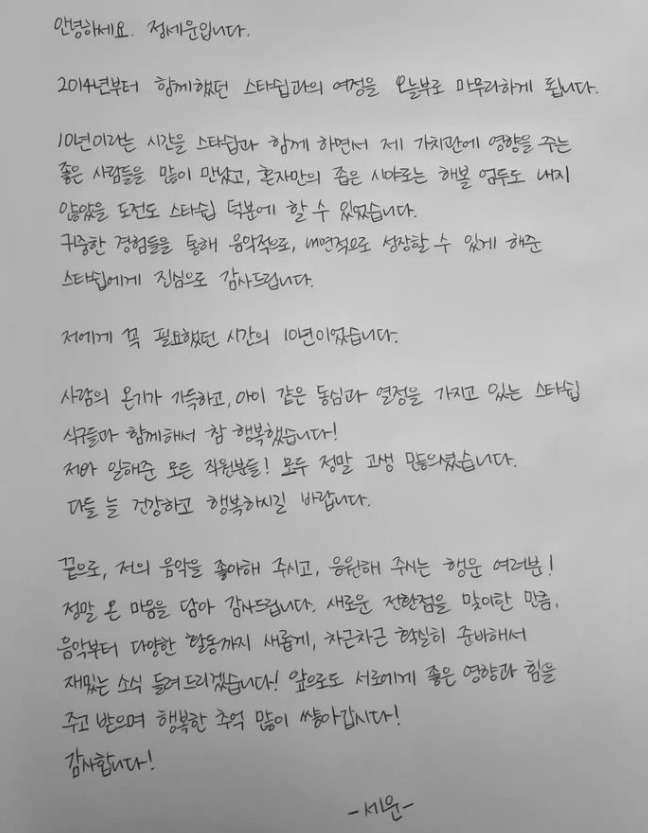 안녕하세요. 정세운입니다.
2014년부터 함께했던 스타쉽과의 여정을 오늘부로 마무리하게 됩니다.
10년이라는 시간을 스타쉽과 함께 하면서 제 가치관에 영향을 주는
좋은 사람들을 많이 만났고, 혼자만의 좁은 시야로는 해볼 엄두도 내지
않았을 도전도 스타쉽 덕분에 할 수 있었습니다.
귀중한 경험들을 통해 음악적으로, 내면적으로 성장할 수 있게 해준
스타쉽에게 진심으로 감사드립니다.
저에게 꼭 필요했던 시간의 10년이었습니다.
사람의 온기가 가득하고, 아이 같은 동심과 열정을 가지고 있는 스타쉽
식구들과 함께해서 참 행복했습니다!
저와 일해준 모든 직원분들! 모두 정말 고생 많으셨습니다.
다들 늘 건강하고 행복하시길 바랍니다.
끝으로, 저의 음악을 좋아해 주시고, 응원해 주시는 행운 여러분!
정말 온 마음을 담아 감사드립니다. 새로운 전환점을 맞이한 만큼,
음악부터 다양한 활동까지 새롭게, 차근차근 확실히 준비해서
재밌는 소식 들려드리겠습니다! 앞으로도 서로에게 좋은 영향과 힘을
주고 받으며 행복한 추억 많이 쌓아갑시다!
감사합니다!
-세운-